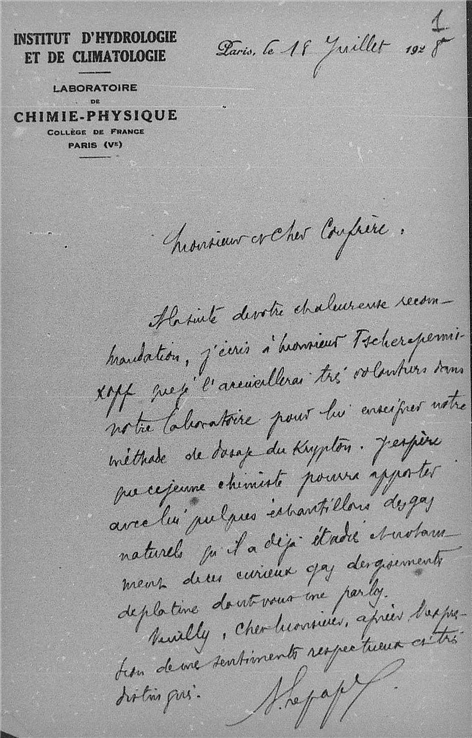 1
INSTITUT D'HYDROLOGIE
ET DE CLIMATOLOGIE
LABORATOIRE
DE
CHIMIE-PHYSIQUE
COLLÈGE DE FRANCE
PARIS (Vᴱ)
Paris, le 18 Juillet 1928
Monsieur et Cher Confrère,
A la suite de votre chaleureuse recom-
mandation, j'écris à Monsieur Tscherepenni-
koff que je l'accueillerai très volontiers dans
notre laboratoire pour lui enseigner notre
méthode de dosage du Krypton. J'espère
que ce jeune chimiste pourra apporter
avec lui quelques échantillons des gaz
naturels qu'il a déjà étudié et notam-
ment de ces curieux gaz des gisements
de platine dont vous me parlez.
Veuillez, Cher Monsieur, agréer l'expres-
sion de mes sentiments respectueux et très
distingués.
A. Lepape